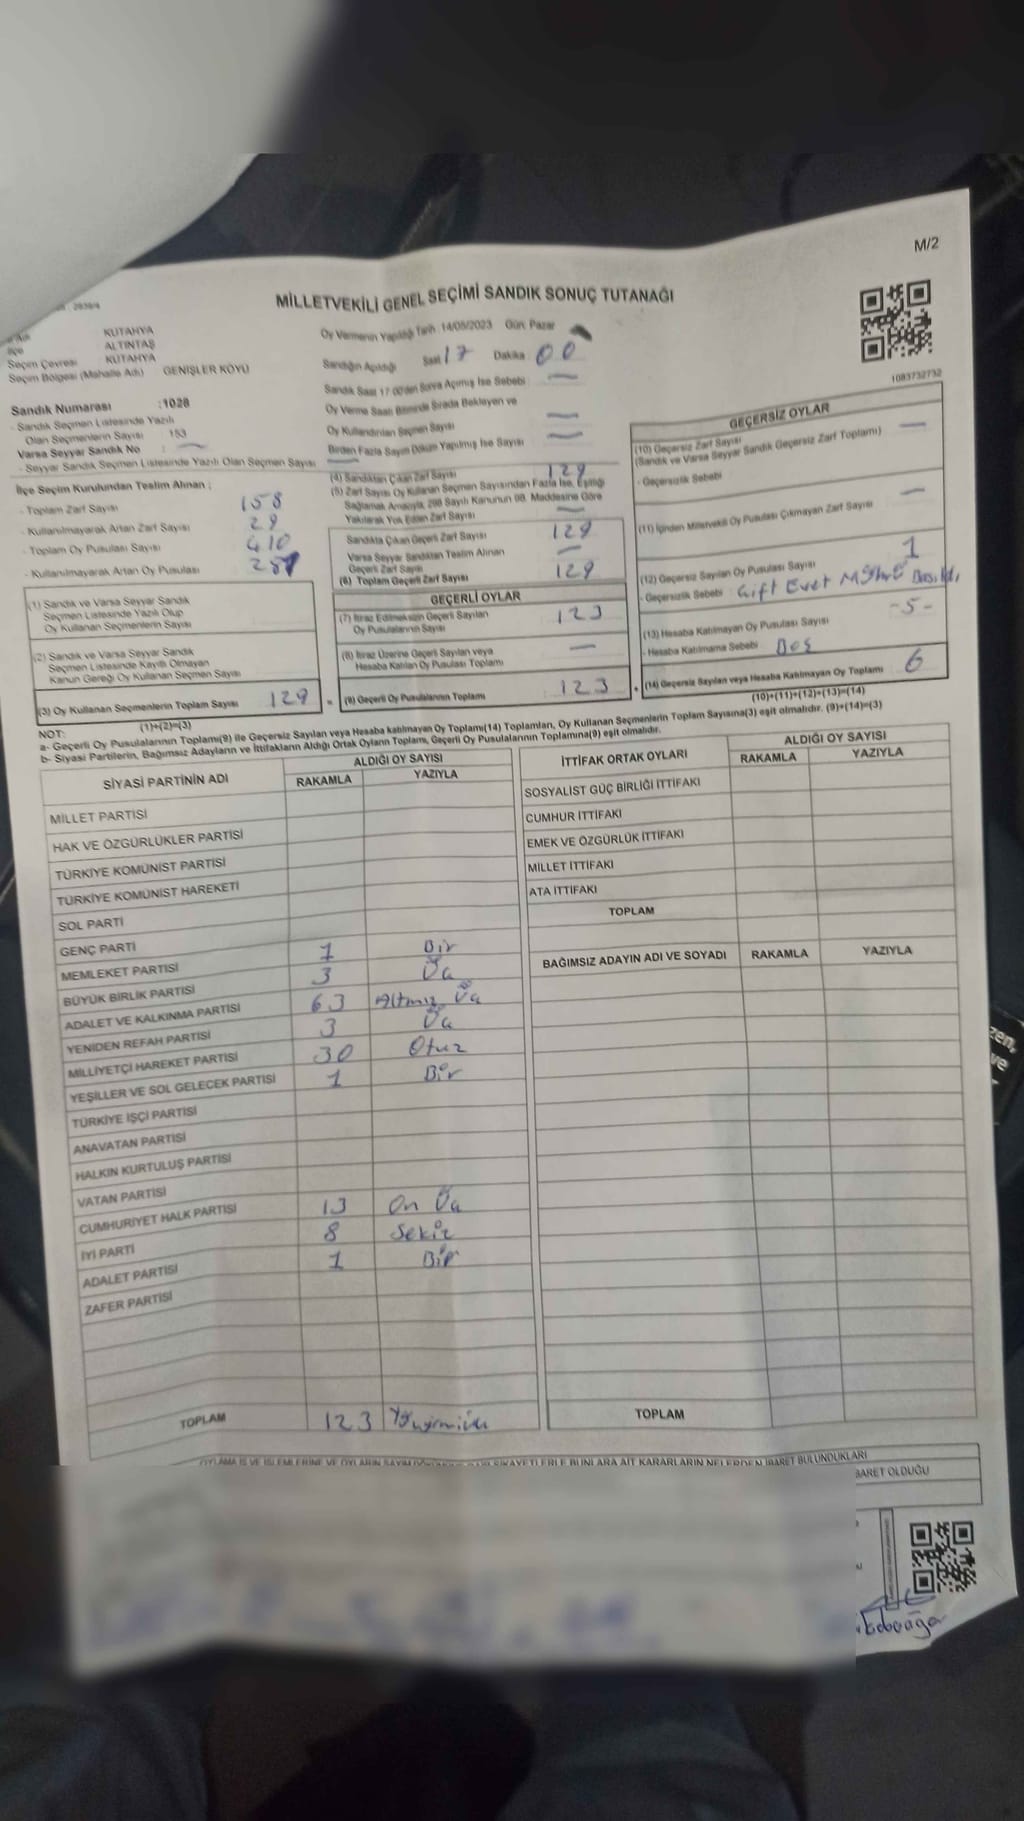 M/2
MİLLETVEKİLİ GENEL SEÇİMİ SANDIK SONUÇ TUTANAĞI
KÜTAHYA
İlçe ALTINTAŞ
Seçim Çevresi KÜTAHYA
Seçim Bölgesi (Mahalle Adı) : GENİŞLER KÖYÜ
Sandık Numarası :1028
- Sandık Seçmen Listesinde Yazılı
Olan Seçmenlerin Sayısı : 153
Varsa Seyyar Sandık No : —
- Seyyar Sandık Seçmen Listesinde Yazılı Olan Seçmen Sayısı —
İlçe Seçim Kurulundan Teslim Alınan ;
- Toplam Zarf Sayısı 158
- Kullanılmayarak Artan Zarf Sayısı 29
- Toplam Oy Pusulası Sayısı 410
- Kullanılmayarak Artan Oy Pusulası 281
(1) Sandık ve Varsa Seyyar Sandık
Seçmen Listesinde Yazılı Olup
Oy Kullanan Seçmenlerin Sayısı
(2) Sandık ve Varsa Seyyar Sandık
Seçmen Listesinde Kayıtlı Olmayan
Kanun Gereği Oy Kullanan Seçmen Sayısı
(3) Oy Kullanan Seçmenlerin Toplam Sayısı 129
(1)+(2)=(3)
Oy Vermenin Yapıldığı Tarih 14/05/2023 Gün: Pazar
Sandığın Açıldığı Saat 17 Dakika 00
Sandık Saat 17.00'den Sonra Açılmış İse Sebebi : —
Oy Verme Saati Bitiminde Sırada Bekleyen ve
Oy Kullandırılan Seçmen Sayısı —
Birden Fazla Sayım Döküm Yapılmış İse Sayısı —
(4) Sandıktan Çıkan Zarf Sayısı 129
(5) Zarf Sayısı Oy Kullanan Seçmen Sayısından Fazla İse, Eşitliği
Sağlamak Amacıyla 298 Sayılı Kanunun 98. Maddesine Göre
Yakılarak Yok Edilen Zarf Sayısı —
Sandıkta Çıkan Geçerli Zarf Sayısı 129
Varsa Seyyar Sandıktan Teslim Alınan
Geçerli Zarf Sayısı —
(6) Toplam Geçerli Zarf Sayısı 129
GEÇERLİ OYLAR
(7) İtiraz Edilmeksizin Geçerli Sayılan
Oy Pusulalarının Sayısı 123
(8) İtiraz Üzerine Geçerli Sayılan veya
Hesaba Katılan Oy Pusulası Toplamı —
= (9) Geçerli Oy Pusulalarının Toplamı 123 +
1083732732
GEÇERSİZ OYLAR
(10) Geçersiz Zarf Sayısı
(Sandık ve Varsa Seyyar Sandık Geçersiz Zarf Toplamı) —
- Geçersizlik Sebebi
(11) İçinden Milletvekili Oy Pusulası Çıkmayan Zarf Sayısı —
(12) Geçersiz Sayılan Oy Pusulası Sayısı 1
- Geçersizlik Sebebi : Çift Evet Mührü Basıldı
(13) Hesaba Katılmayan Oy Pusulası Sayısı -5-
- Hesaba Katılmama Sebebi Boş
(14) Geçersiz Sayılan veya Hesaba Katılmayan Oy Toplamı 6
(10)+(11)+(12)+(13)=(14)
NOT:
a- Geçerli Oy Pusulalarının Toplamı(9) ile Geçersiz Sayılan veya Hesaba katılmayan Oy Toplamı(14) Toplamları, Oy Kullanan Seçmenlerin Toplam Sayısına(3) eşit olmalıdır. (9)+(14)=(3)
b- Siyasi Partilerin, Bağımsız Adayların ve İttifakların Aldığı Ortak Oyların Toplamı, Geçerli Oy Pusulalarının Toplamına(9) eşit olmalıdır.
SİYASİ PARTİNİN ADI ALDIĞI OY SAYISI
RAKAMLA YAZIYLA
MİLLET PARTİSİ
HAK VE ÖZGÜRLÜKLER PARTİSİ
TÜRKİYE KOMÜNİST PARTİSİ
TÜRKİYE KOMÜNİST HAREKETİ
SOL PARTİ
GENÇ PARTİ 1 Bir
MEMLEKET PARTİSİ 3 Üç
BÜYÜK BİRLİK PARTİSİ 63 Altmış Üç
ADALET VE KALKINMA PARTİSİ 3 Üç
YENİDEN REFAH PARTİSİ 30 Otuz
MİLLİYETÇİ HAREKET PARTİSİ 1 Bir
YEŞİLLER VE SOL GELECEK PARTİSİ
TÜRKİYE İŞÇİ PARTİSİ
ANAVATAN PARTİSİ
HALKIN KURTULUŞ PARTİSİ
VATAN PARTİSİ 13 On Üç
CUMHURİYET HALK PARTİSİ 8 Sekiz
İYİ PARTİ 1 Bir
ADALET PARTİSİ
ZAFER PARTİSİ
TOPLAM 123
İTTİFAK ORTAK OYLARI ALDIĞI OY SAYISI
RAKAMLA YAZIYLA
SOSYALİST GÜÇ BİRLİĞİ İTTİFAKI
CUMHUR İTTİFAKI
EMEK VE ÖZGÜRLÜK İTTİFAKI
MİLLET İTTİFAKI
ATA İTTİFAKI
TOPLAM
BAĞIMSIZ ADAYIN ADI VE SOYADI RAKAMLA YAZIYLA
TOPLAM
OYLAMA İŞ VE İŞLEMLERİNE VE OYLARIN SAYIM DÖKÜMÜNE ŞİKAYETLERLE BUNLARA AİT KARARLARIN NELERDEN İBARET BULUNDUKLARI
BARET OLDUĞU
zen,
ve